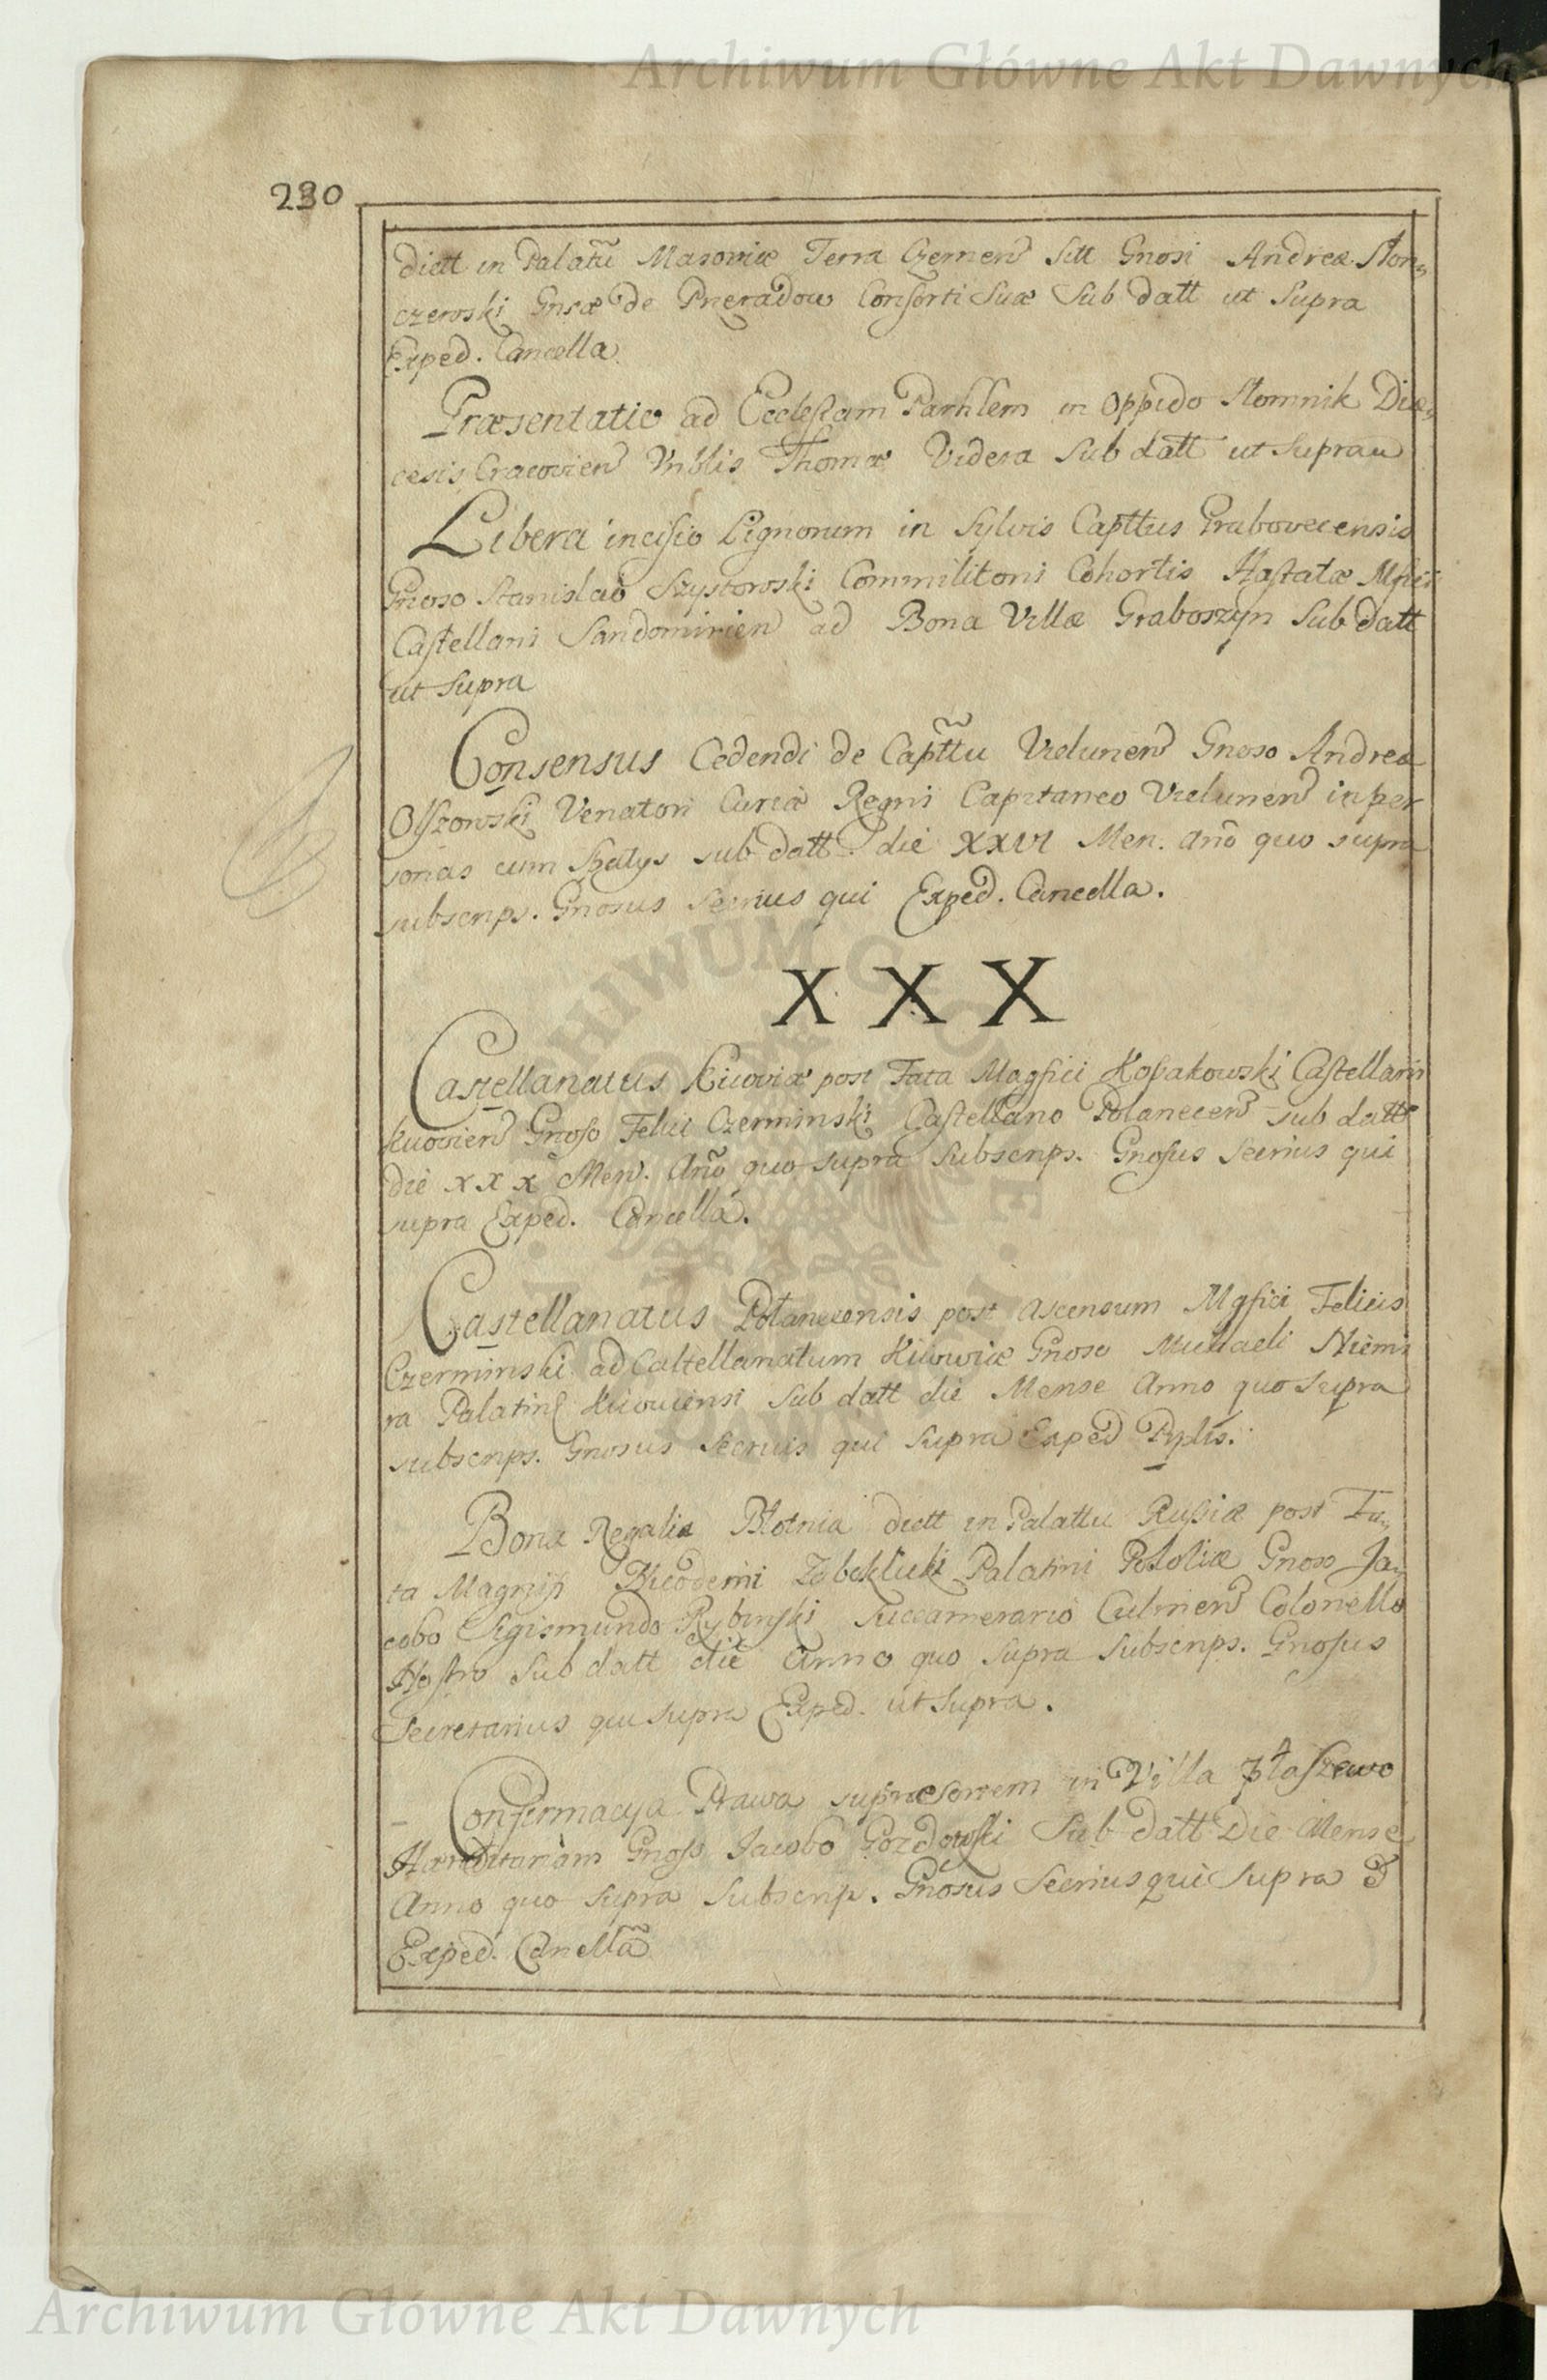 Archiwum Główne Akt Dawnych
230
dictt in Palatũ Masoviæ Terra Czernen Sitt Gnosi Andreæ Ston„
czewski Gnsæ de Pneradow Consorti Suæ Sub datt ut Supra
Exped. Cancella
Præsentatio ad Ecclesiam Parhlem in Oppido Słomnik Diæ„
cesis Cracovien Vnblis Thomæ Videra Sub datt ut Supra
Libera incisio Lignorum in Sylvis Capttus Grabovecensis
Gnoso Stanislao Szystowski Commilitoni Cohortis Hastatæ Mfici
Castellani Sandomirien ad Bona Villæ Graboszyn Sub datt
ut Supra
Consensus Cedendi de Capttu Vielunen Gnoso Andreæ
Olszowski Venatori Curiæ Regni Capitaneo Vielunen in per
sonas cum Spatys sub datt die XXVI Men. Año quo supra
subscrips. Gnosus Secrius qui Exped. Cancella.
XXX
Castellanatus Kijoviæ post Fata Magfici Kossakowski Castellani
Kijovien Gnoso Felici Czerminski Castellano Połanecen sub datt
die xxx Men. Año quo supra Subscrips. Gnosus Secrius qui
supra Exped. Cancella.
Castellanatus Połanecensis post ascensum Mgfici Felicis
Czerminski ad Castellanatum Kijoviæ Gnoso Michaeli Niemi
ra Palatin Kijoviensi Sub datt die Mense Anno quo Supra
subscrips. Gnosus Secrius qui Supra Exped Pplis.
Bona Regalia Błotnia dictt in Palattu Russiæ post Fa„
ta Magnifi Nicodemi Zaboklicki Palatini Podoliæ Gnoso Ja„
cobo Sigismundo Rybinski Succamerario Culmen Colonello
Nostro Sub datt die Anno quo Supra Subscrips. Gnosus
Secretarius qui supra Exped. ut Supra.
Confirmacya Prawa in Villa Płaszewo
Hæreditariam Gnoso Jacobo Gozdowski Sub datt Die Mense
Anno quo Supra Subscrip. Gnosus Secrius qui Supra
Exped. Cancellã
Archiwum Główne Akt Dawnych